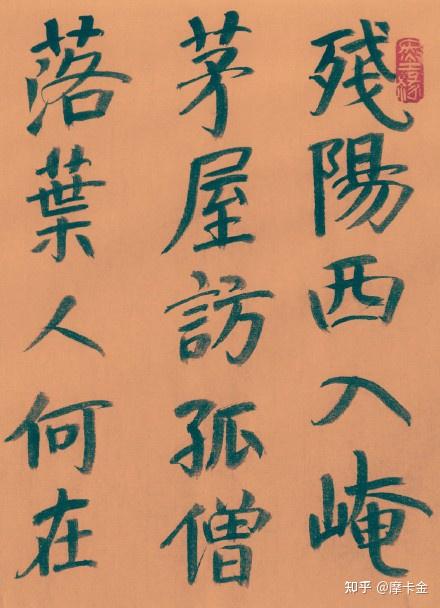 殘陽西入崦
茅屋訪孤僧
落葉人何在
知乎 @摩卡金